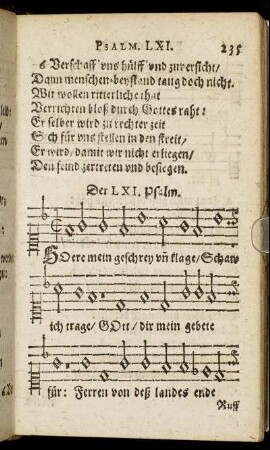 PSALM. LXI. 235
6 Verschaff vns hülff vnd zuversicht/
Dann menschen-beystand taug doch nicht.
Wir wollen ritterliche that
Verrichten bloß durch Gottes raht:
Er selber wird zu rechter zeit
Sich für vns stellen in den streit/
Er wird/ damit wir nicht erliegen/
Den feind zertreten vnd besiegen.
Der LXI. Psalm.
HOere mein geschrey vñ klage/ Schaw
ich trage/ GOtt/ dir mein gebete
für: Ferren von deß landes ende
Ruff